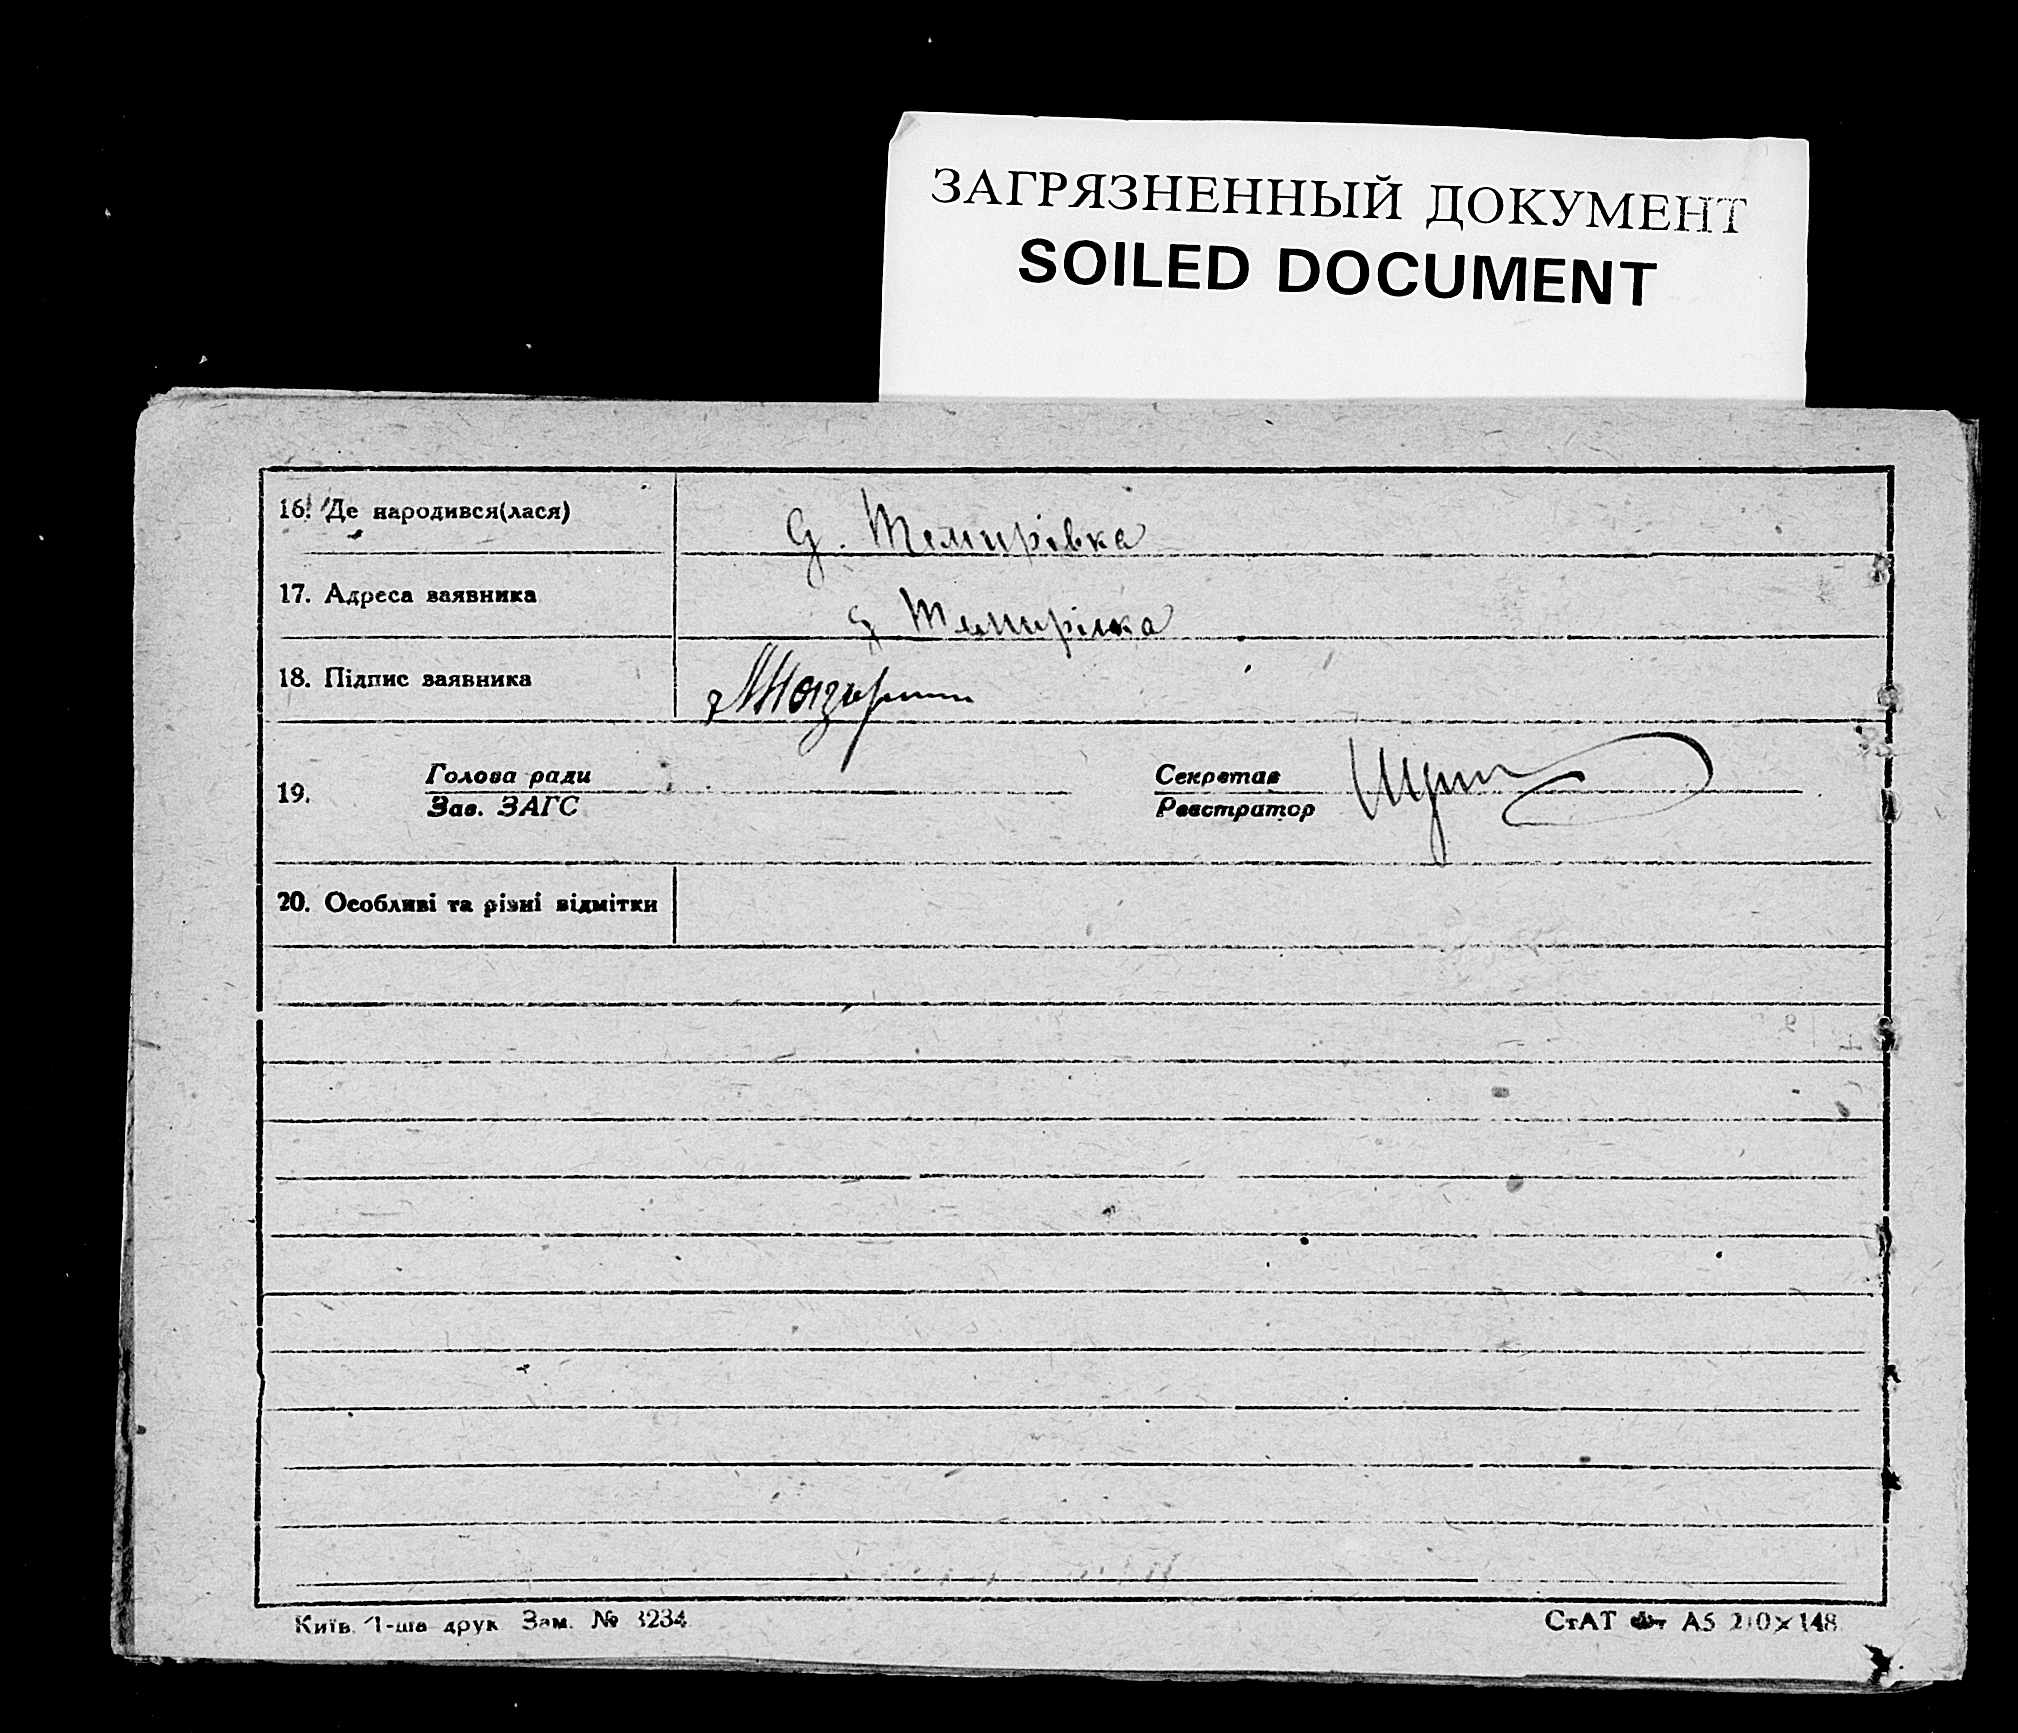 ЗАГРЯЗНЕННЫЙ ДОКУМЕНТ
SOILED DOCUMENT
16. Де народився(лася) д. Темирівка
17. Адреса заявника д Темирівка
18. Підпис заявника
19. Голова ради Секретар
Зав. ЗАГС Реєстратор
20. Особливі та різні відмітки
Київ 1-ша друк Зам. № 3234
СтАТ Фт А5 210×148